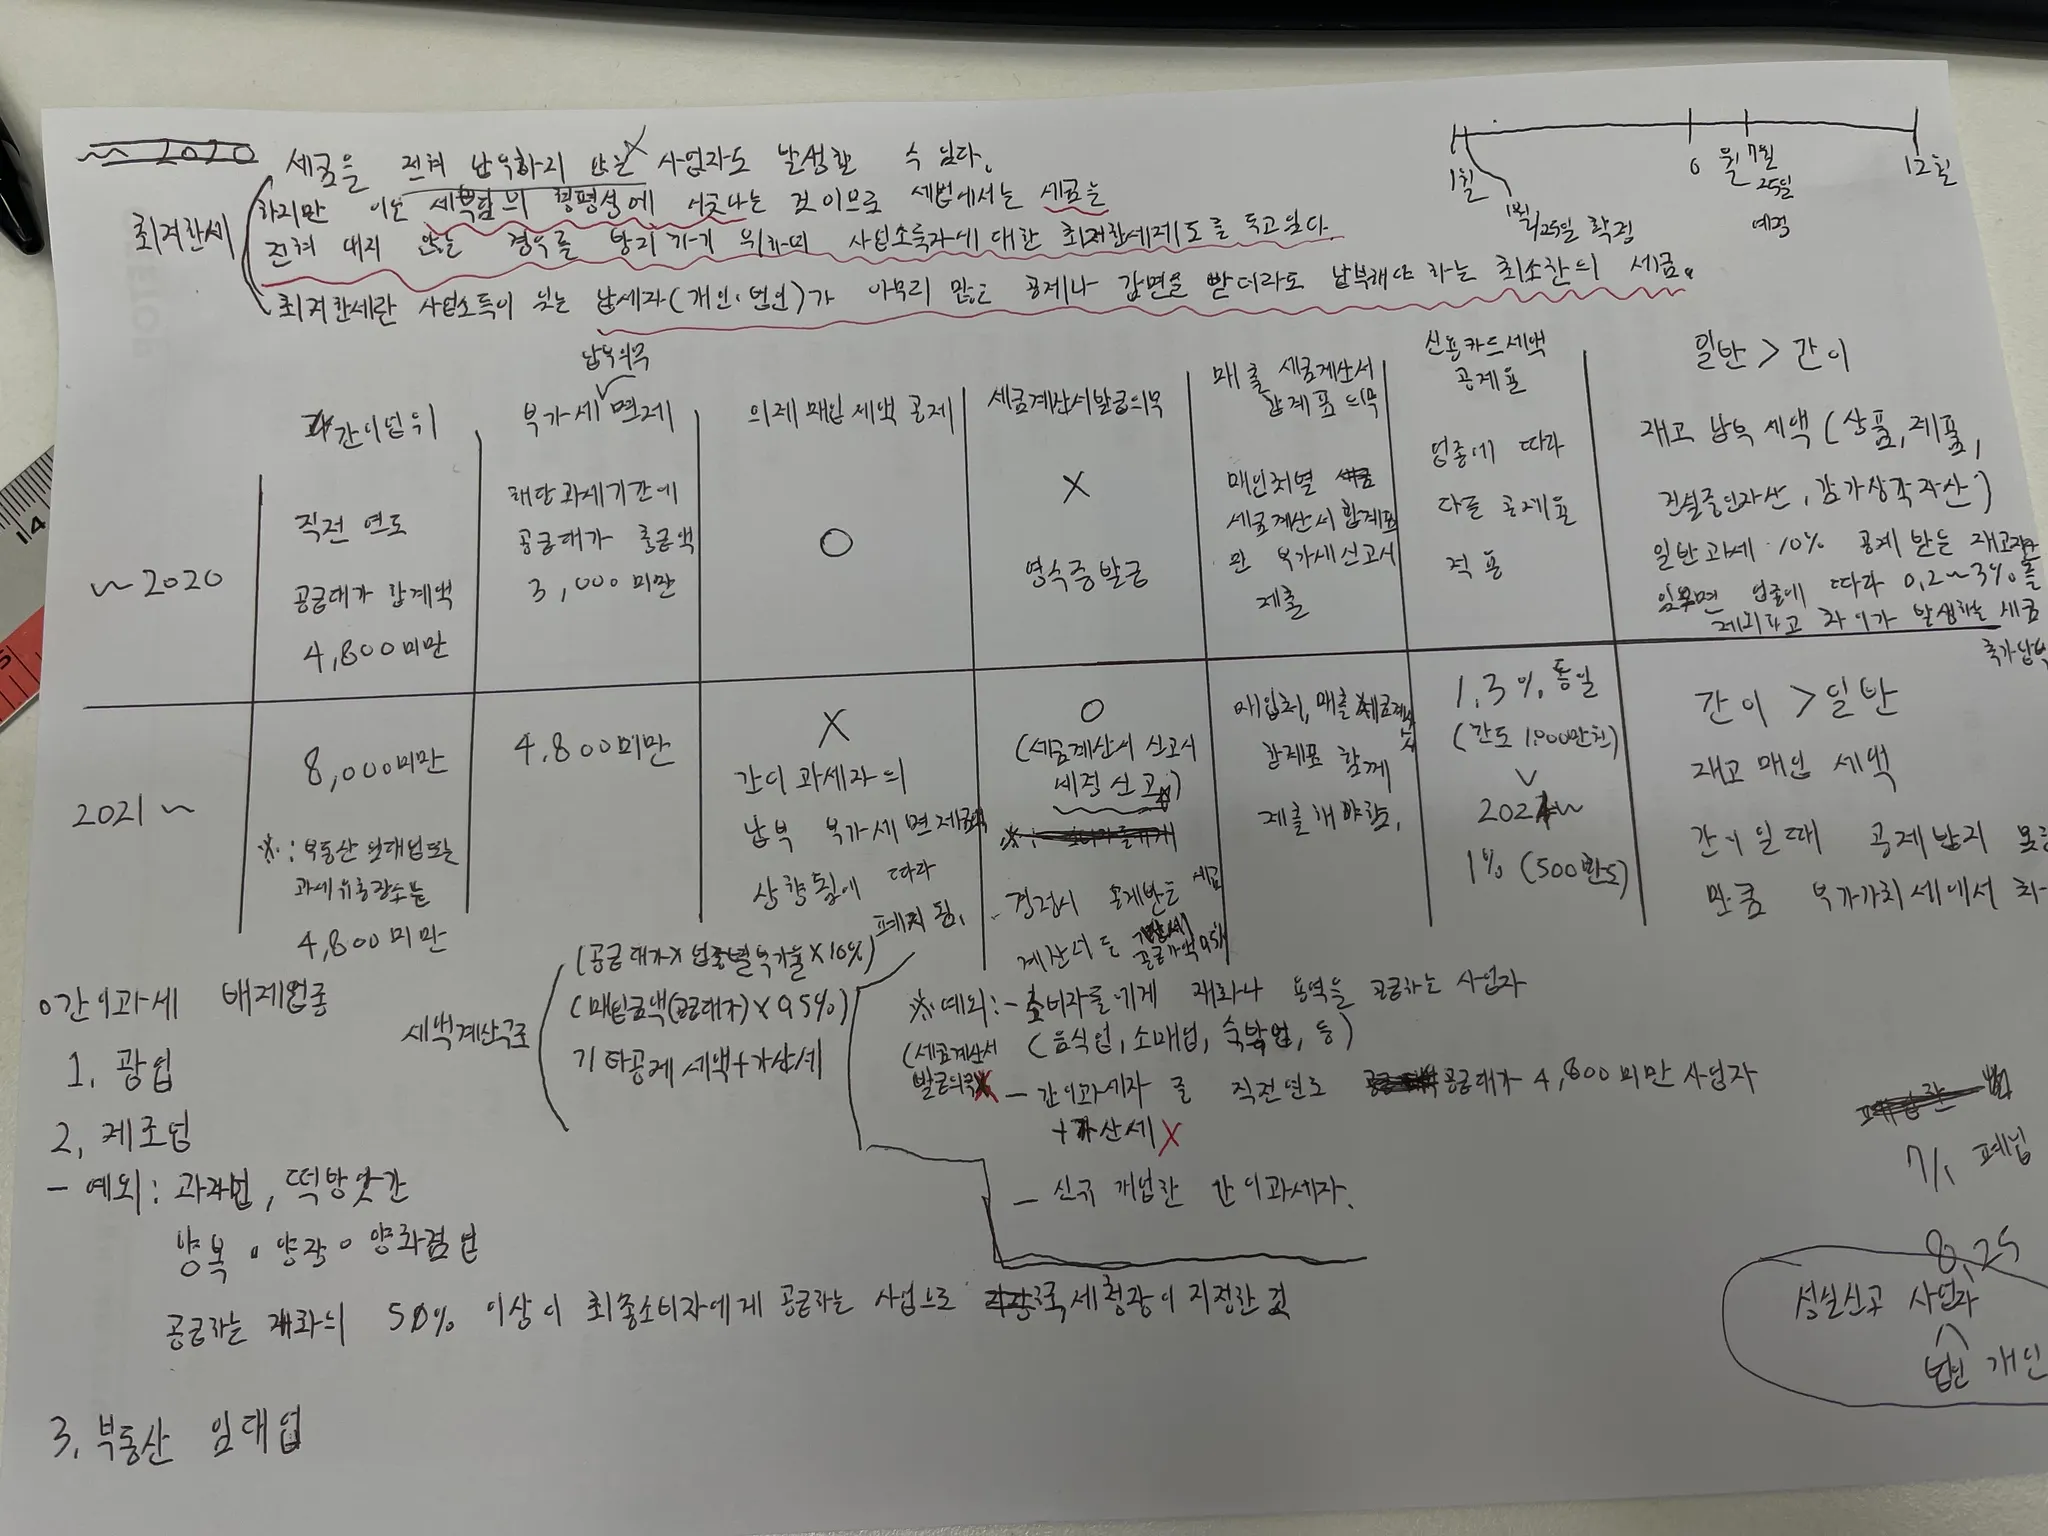 ~ 2020
세금을 전혀 납부하지 않는 사업자도 발생할 수 있다.
최저한세
하지만 이는 세부담의 형평성에 어긋나는 것이므로 세법에서는 세금을
전혀 내지 않는 경우를 방지하기 위하여 사업소득자에 대한 최저한세제도를 두고있다.
최저한세란 사업소득이 있는 납세자(개인·법인)가 아무리 많은 공제나 감면을 받더라도 납부해야 하는 최소한의 세금.
1월
1월/25일 확정
6월
7월
25일
예정
12월
간이범위
납부의무
부가세 면제
의제매입세액 공제
세금계산서발급의무
매출 세금계산서
합계표 의무
신용카드세액
공제율
일반 > 간이
~ 2020
직전 연도
공급대가 합계액
4,800미만
해당과세기간에
공급대가 총금액
3,000미만
O
X
영수증발급
매입처별
세금계산서 합계표
만 부가세신고서
제출
업종에 따라
다른 공제율
적용
재고 납부 세액 (상품, 제품,
건설중인자산, 감가상각자산)
일반과세 10% 공제 받은 재고자산
있으면 업종에 따라 0.2~3%를
제외하고 차이가 발생하는 세금
추가납부
2021 ~
8,000미만
※: 부동산 임대업또는
과세유흥장소는
4,800미만
4,800미만
X
간이 과세자의
납부 부가세 면제금액
상향됨에 따라
폐지됨.
O
(세금계산서 신고시
예정신고)
경정시 공제받는 세금
계산서는
공급가액 0.5%
매입처, 매출 세금계산서
합계표 함께
제출해야함.
1.3% 통일
(한도 1,000만원)
2024~
1% (500한도)
간이 > 일반
재고 매입 세액
간이일때 공제받지 못한
만큼 부가가치세에서 차
o간이과세 배제업종
1. 광업
2. 제조업
- 예외: 과자점, 떡방앗간
양복·양장·양화점은
공급하는 재화의 50% 이상이 최종소비자에게 공급하는 사업으로 국세청장이 지정한 것
3. 부동산 임대업
세액계산구조
(공급대가 x 업종별부가율 x 10%)
(매입금액(공급대가) x 0.5%)
기타공제 세액+가산세
※예외: - 소비자들에게 재화나 용역을 공급하는 사업자
(음식업, 소매업, 숙박업, 등)
(세금계산서
발급의무X
- 간이과세자 중 직전연도 공급대가 4,800미만 사업자
+ 가산세 X
- 신규 개업한 간이과세자.
7/1 폐업
8.25
성실신고 사업자
법인 개인